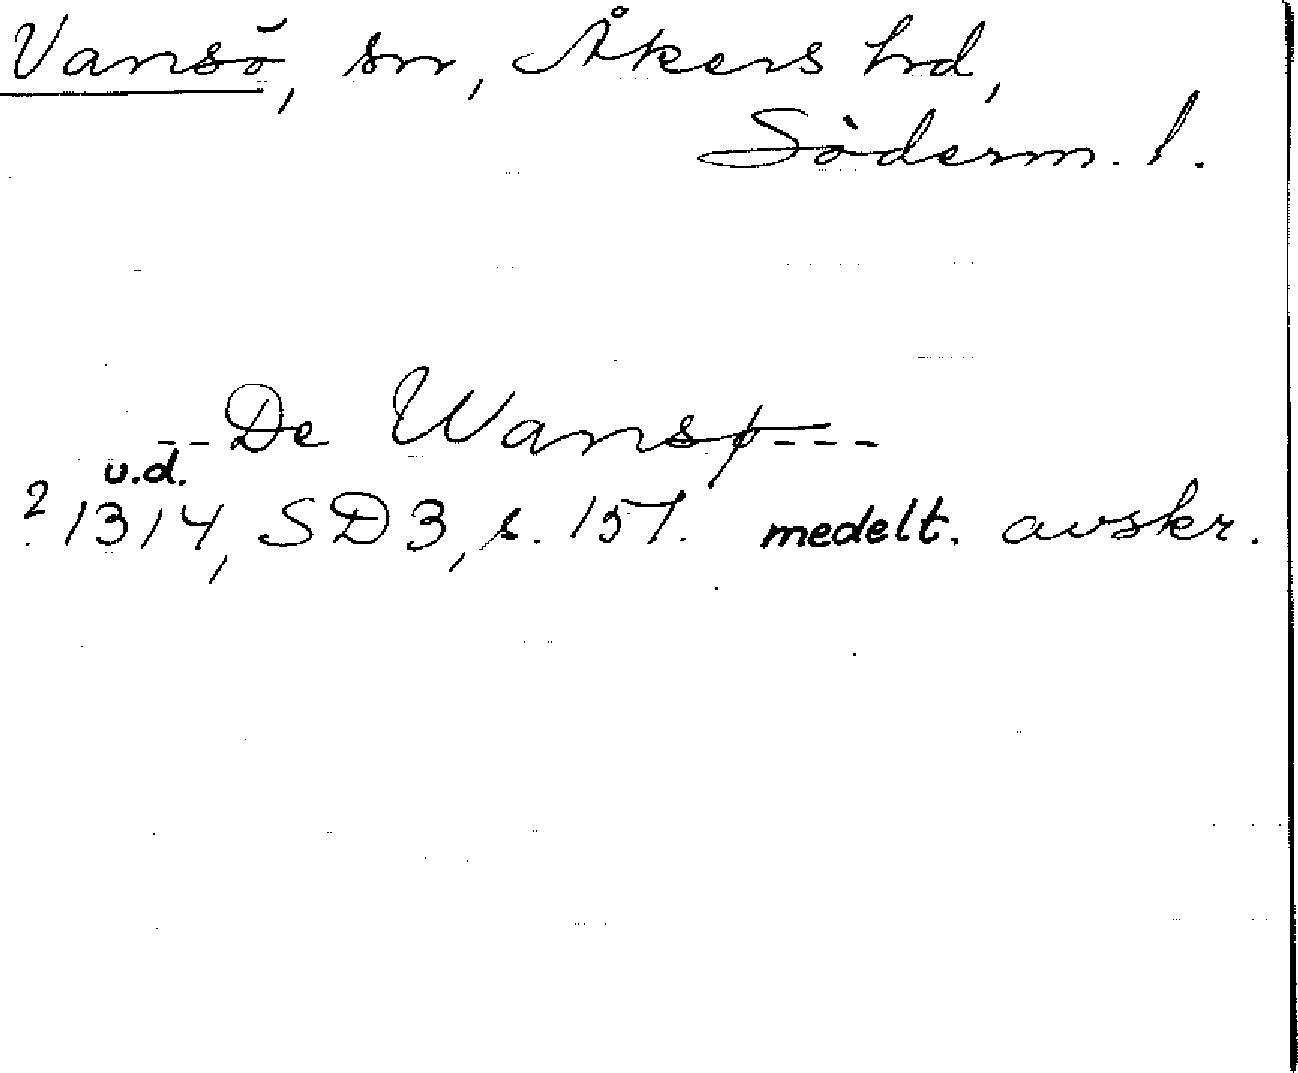 Vansö, sn, Åkers hd,
Söderm. l.
-- De Wansø ---
u.d.
? 1314, SD 3, s. 157. medelt. avskr.